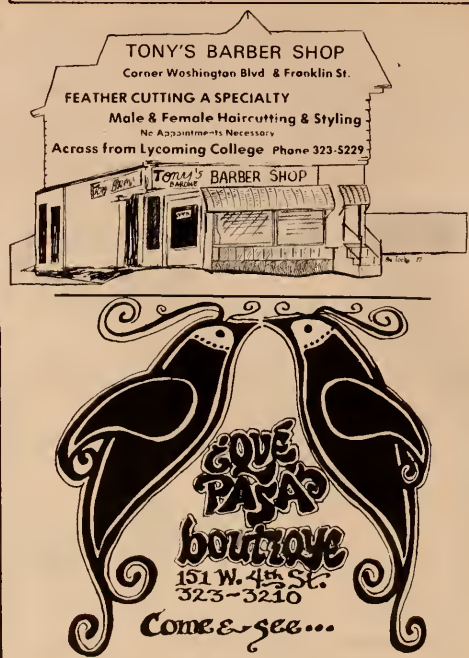 TONY'S BARBER SHOP
Corner Washington Blvd & Franklin St.
FEATHER CUTTING A SPECIALTY
Male & Female Haircutting & Styling
No Appointments Necessary
Across from Lycoming College Phone 323-5229
Tony's BARBER SHOP
¿QUÉ
PASA?
boutique
151 W. 4th St.
323-3210
Come & see...